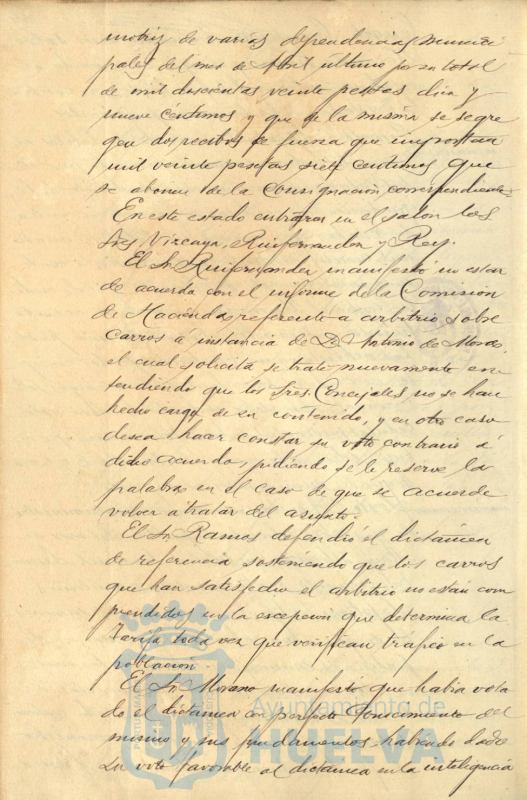 motriz de varias dependencias munici
pales del mes de Abril ultimo por su total
de mil doscientas veinte pesetas diez y
nueve céntimos y que de la misma se segre
gen dos recibos de fuerza que importan
mil veinte pesetas siete centimos que
se abonen de la Consignación correspondiente.
En este estado entraron en el salon los
Sres Vizcaya, Ruifernandez y Rey.
El Sr. Ruifernandez manifestó no estar
de acuerdo con el informe de la Comision
de Hacienda referente a arbitrio sobre
carros a instancia de D. Antonio de Mora
el cual solicita se trate nuevamente en
tendiendo que los Sres. Concejales no se han
hecho cargo de su contenido, y en otro caso
desea hacer constar su voto contrario á
dicho acuerdo, pidiendo se le reserve la
palabra en el caso de que se acuerde
volver a tratar del asunto.
El Sr. Ramos defendió el dictámen
de referencia sosteniendo que los carros
que han satisfecho el arbitrio no están com
prendidos en la excepcion que determina la
Tarifa toda vez que verifican trafico en la
poblacion.
El Sr. Morano manifestó que habia vota
do el dictámen con perfecto conocimiento del
mismo y sus fundamentos habiendo dado
su voto favorable al dictámen en la inteligencia
Ayuntamiento de
HUELVA